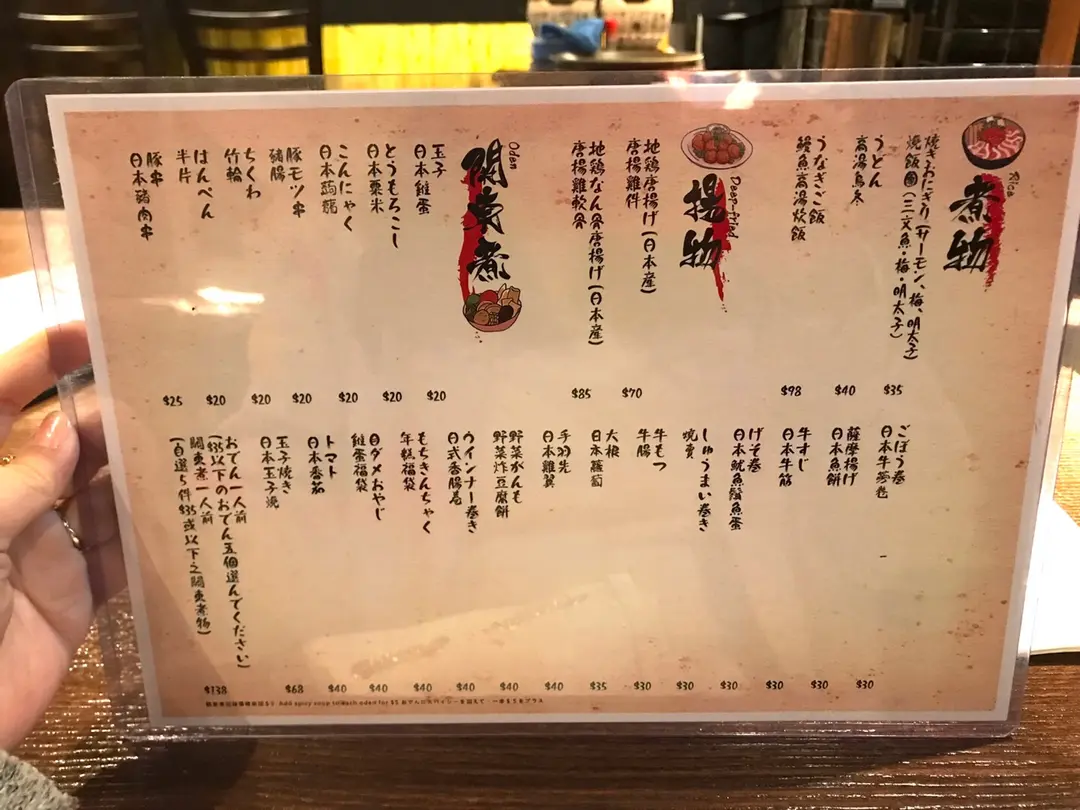 煮物
Rice
焼きおにぎり(サーモン、梅、明太子)
焼飯團(三文魚・梅・明太子)
$35
うどん
高湯烏冬
$40
うなぎご飯
鰻魚高湯炊飯
$98
揚物
Deep-fried
地鶏唐揚げ(日本産)
唐揚雞件
$70
地鶏なん骨唐揚げ(日本産)
唐揚雞軟骨
$85
関東煮
Oden
玉子
日本雞蛋
$20
とうもろこし
日本粟米
$20
こんにゃく
日本蒟蒻
$20
豚モツ串
豬腸
$20
ちくわ
竹輪
$20
はんぺん
半片
$20
豚串
日本豬肉串
$25
ごぼう巻
日本牛蒡卷
$30
薩摩揚げ
日本魚餅
$30
牛すじ
日本牛筋
$30
げそ巻
日本魷魚鬚魚蛋
$30
しゅうまい巻き
燒賣
$30
牛もつ
牛腸
$30
大根
日本蘿蔔
$35
手羽先
日本雞翼
$40
野菜がんも
野菜炸豆腐餅
$40
ウインナー巻き
日式香腸卷
$40
もちきんちゃく
年糕福袋
$40
目ダメおやじ
雞蛋福袋
$40
トマト
日本番茄
$40
玉子焼き
日本玉子燒
$68
おでん一人前
($35以下のおでん五個選んでください)
關東煮一人前
(自選5件$35或以下之關東煮物)
$138
Add spicy soup to each oden for $5